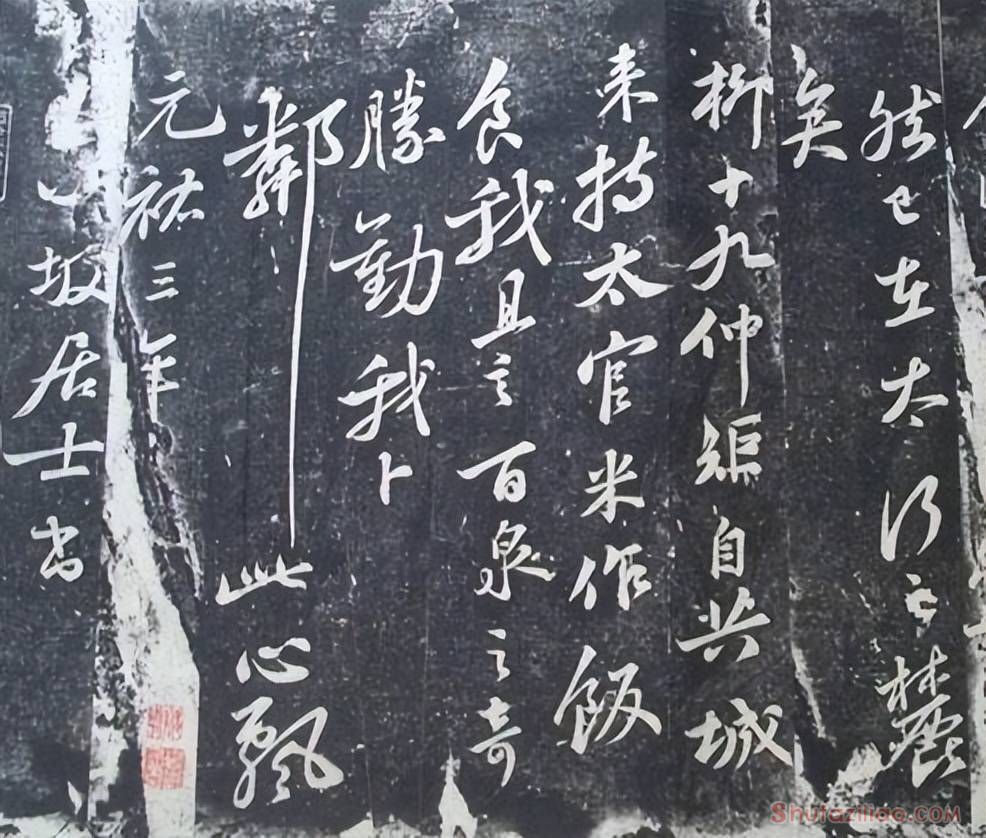 然已在太行之麓
矣
柳十九仲矩自共城
来持太官米作飯
食我且言百泉之奇
勝勸我卜
鄰此心飄
元祐三年
坡居士書
Shufaziliao.com